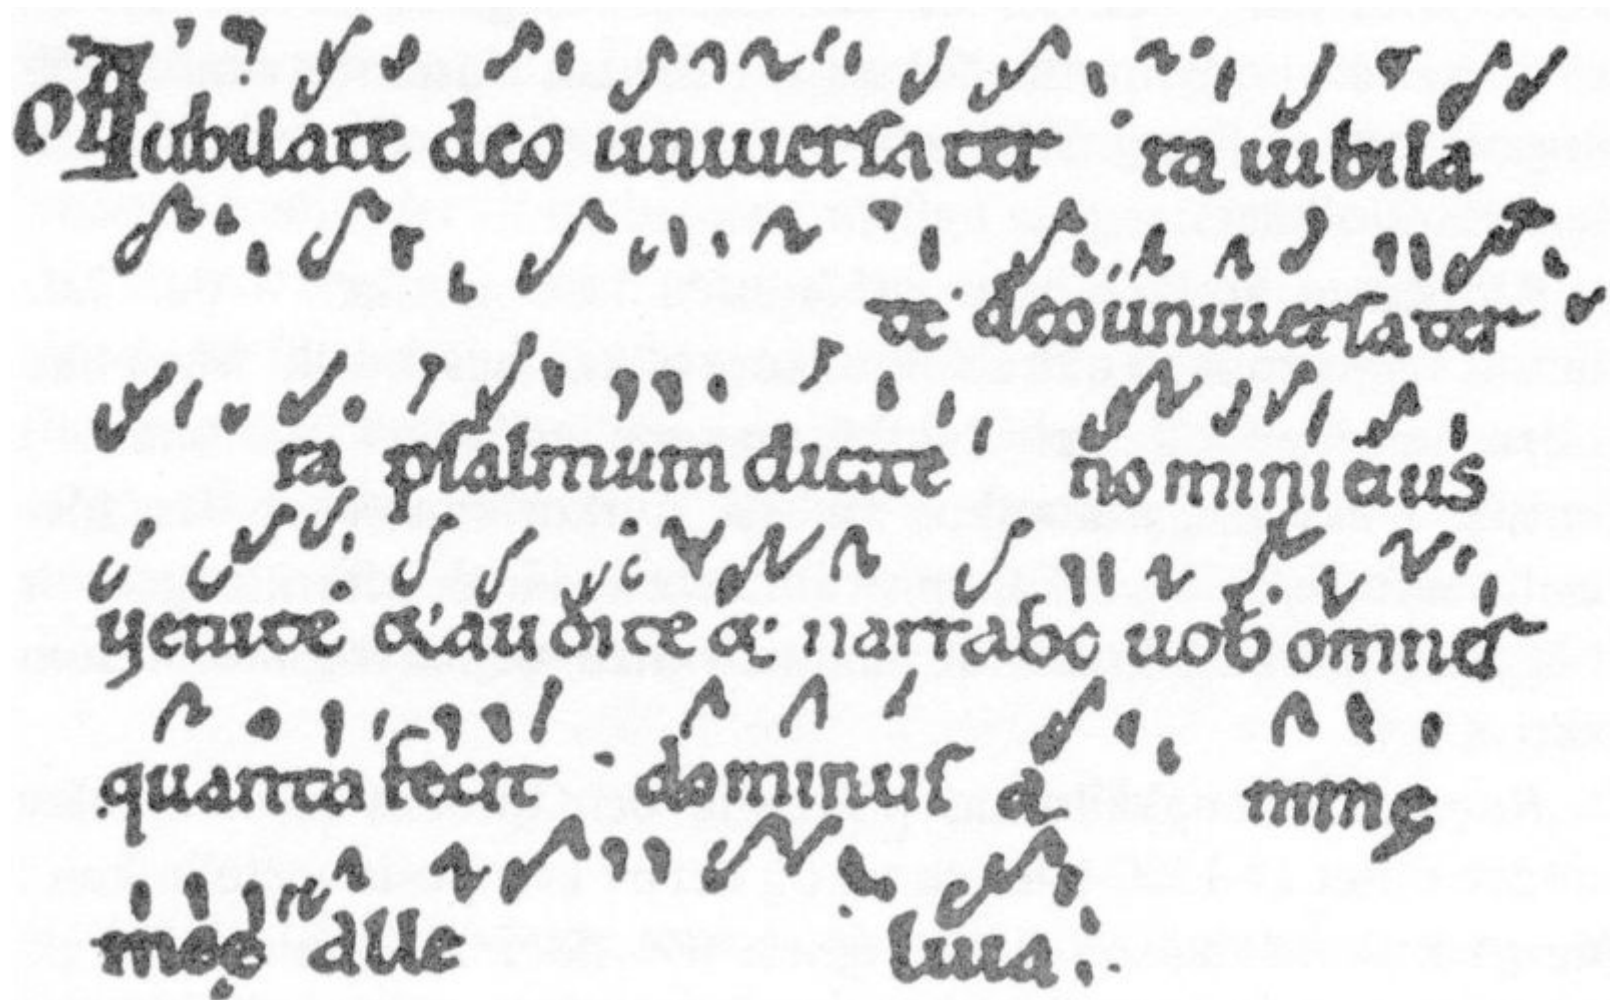 Of Iubilate deo uniuersa ter ra iubila
te deo uniuersa ter
ra psalmum dicite nomini eius
Uenite & audite & narrabo uob omnes
quanta fecit dominus a nimę
meę alle luia